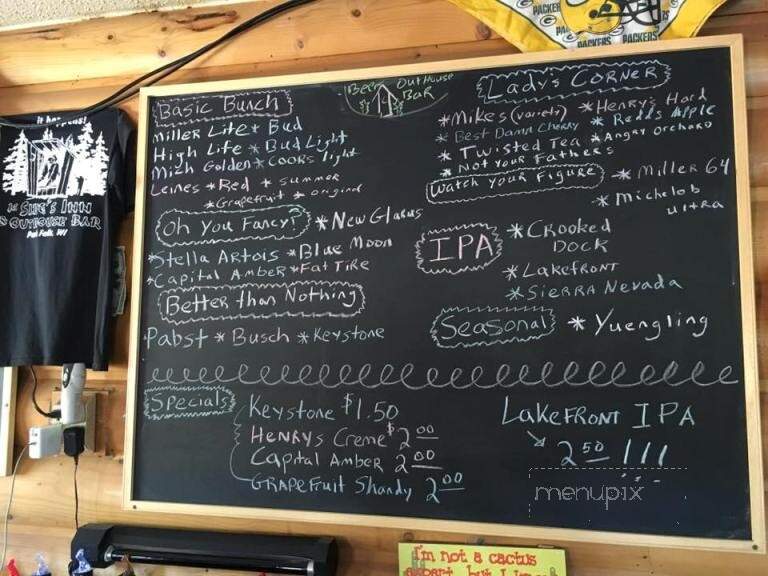 PACKERS
PACKERS
PACKERS
it happens!
SHE'S INN
OUTHOUSE BAR
Beer OutHouse
BAR
Basic Bunch
Miller Lite + Bud
High Life * Bud Light
Mich Golden * COORS light
Leines * Red * summer
* Grapefruit * original
Oh You Fancy? * New Glarus
* Stella Artois * Blue Moon
* Capital Amber * Fat Tire
Better than Nothing
Pabst * Busch * Keystone
Lady's CORNER
* Mikes (variety) * Henry's Hard
* Best Damn Cherry * Redds Apple
* Twisted Tea * Angry orchard
* Not Your Fathers
Watch your Figure * Miller 64
* Michelob
ultra
IPA * CROOKED
DOCK
* LakeFRONT
* SIERRA Nevada
Seasonal * Yuengling
Specials
Keystone $1.50
HENRYS Creme $2.00
Capital Amber 2.00
GRAPEFRUIT Shandy 2.00
LakeFRONT IPA
2.50 !!!
menupix
I'm not a cactus
expert, but I know